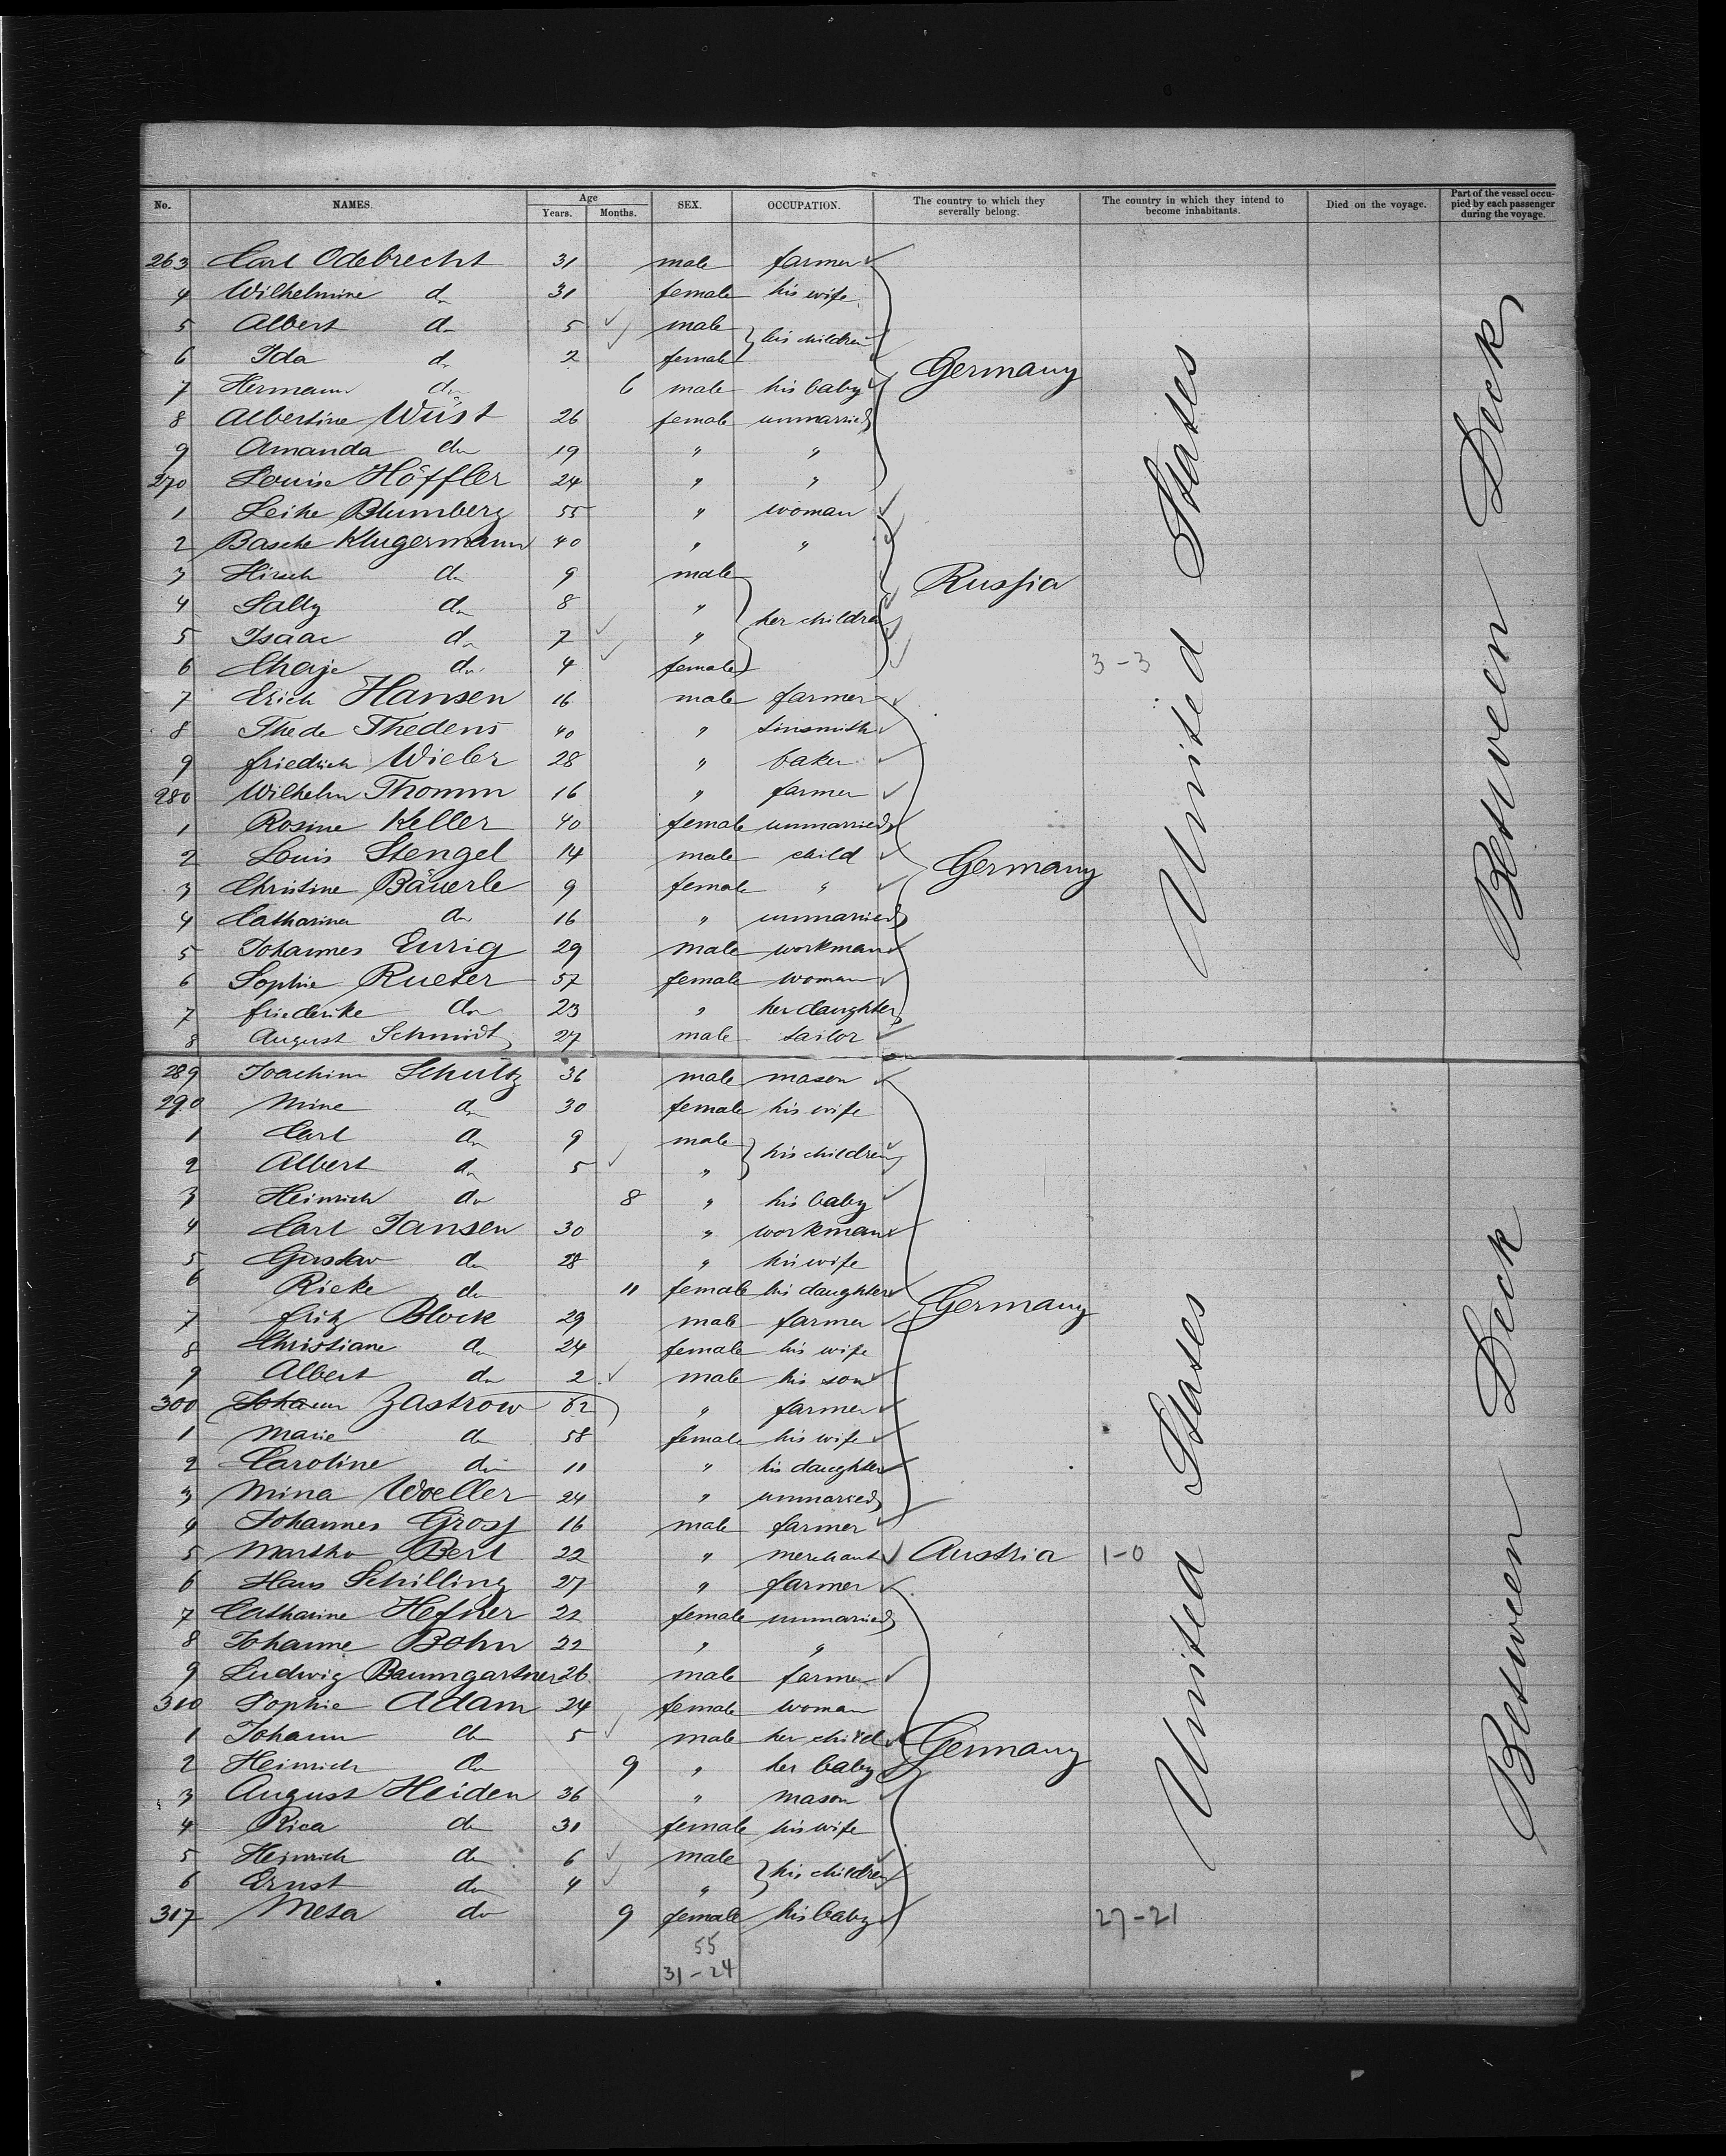 No. NAMES. Age Years. Months. SEX. OCCUPATION. The country to which they severally belong. The country in which they intend to become inhabitants. Died on the voyage. Part of the vessel occupied by each passenger during the voyage.
263 Carl Odebrecht 31 male farmer
4 Wilhelmine do 31 female his wife
5 Albert do 5 male his children
6 Ida do 2 female
Germany
7 Hermann do 6 male his baby
8 Albertine Wüst 26 female unmarried
9 Amanda do 19 " "
270 Louise Höffler 24 " "
1 Leike Blumberg 55 " woman
2 Basche Klugermann 40 " "
3 Hirsch do 9 male
Russia
4 Sally do 8 " her children
5 Isaac do 7 "
6 Chaje do 4 female 3-3
7 Erich Hansen 16 male farmer
8 Thede Thedens 40 " tinsmith
9 Friedrich Wieler 28 " baker
280 Wilhelm Thomm 16 " farmer
1 Rosine Keller 40 female unmarried
2 Louis Stengel 14 male child
Germany
3 Christine Bäuerle 9 female "
4 Catharina do 16 " unmarried
5 Johannes Eurig 29 male workman
6 Sophie Rueter 57 female woman
7 Friederike do 23 " her daughter
8 August Schmidt 27 male tailor
United States
Between Deck
289 Joachim Schultz 36 male mason
290 Mine do 30 female his wife
1 Carl do 9 male his children
2 Albert do 5 "
3 Heinrich do 8 " his baby
4 Carl Jansen 30 " workman
5 Gustav do 28 " his wife
6 Rieke do 11 female his daughter
Germany
7 Fritz Block 29 male farmer
8 Christiane do 24 female his wife
9 Albert do 2 male his son
300 Johann Zastrow 62 " farmer
1 Marie do 58 female his wife
2 Caroline do 11 " his daughter
3 Mina Woeller 24 " unmarried
4 Johannes Gross 16 male farmer
5 Martho Berl 22 " merchant Austria 1-0
6 Hans Schilling 27 " farmer
7 Catharine Hefner 22 female unmarried
8 Johanne Bohn 22 " "
9 Ludwig Baumgartner 26 male farmer
310 Sophie Adam 24 female woman
1 Johann do 5 male her child
Germany
2 Heinrich do 9 " her baby
3 August Heiden 36 " mason
4 Rica do 31 female his wife
5 Heinrich do 6 male his children
6 Ernst do 4 "
317 Meta do 9 female his baby 27-21
United States
Between Deck
55
31-24